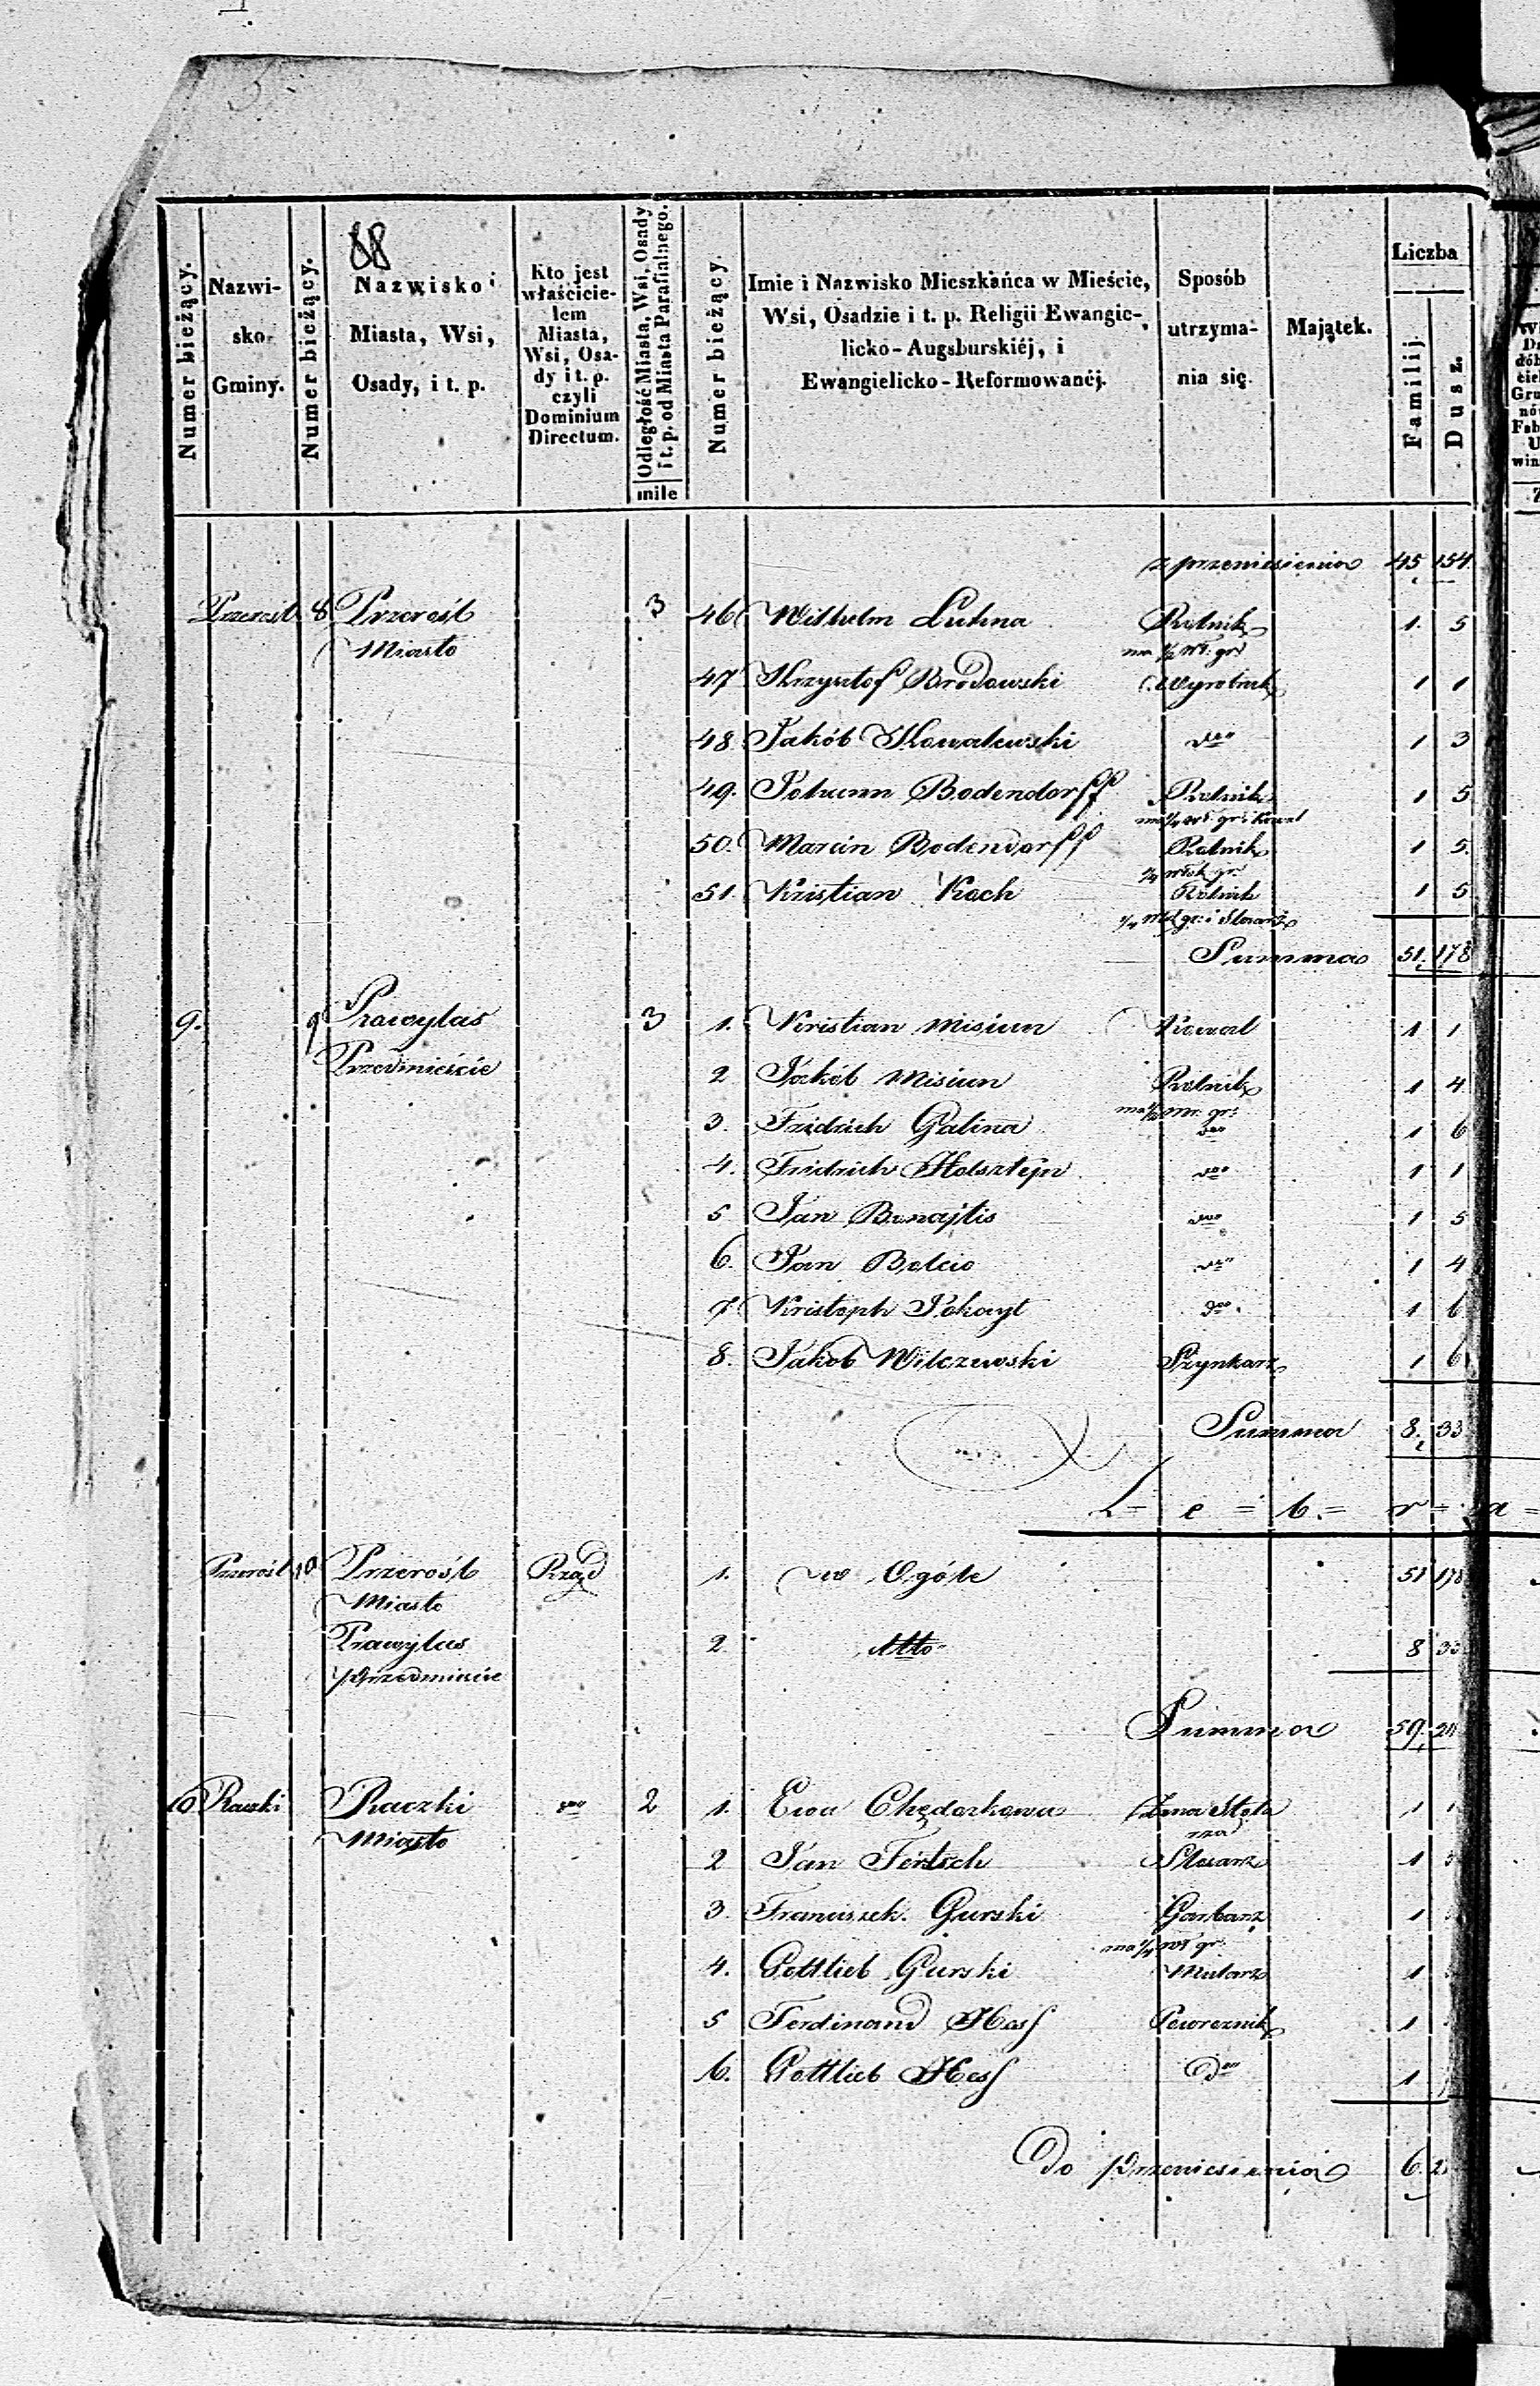 88
Numer bieżący.
Nazwi-
sko
Gminy.
Numer bieżący.
Nazwisko
Miasta, Wsi,
Osady, i t. p.
Kto jest
właścicie-
lem
Miasta,
Wsi, Osa-
dy i t. p.
czyli
Dominium
Directum.
Odległość Miasta, Wsi, Osady
i t. p. od Miasta Parafialnego.
mile
Numer bieżący.
Imie i Nazwisko Mieszkańca w Mieście,
Wsi, Osadzie i t. p. Religii Ewangie-
licko-Augsburskiéj, i
Ewangielicko-Reformowanéj.
Sposób
utrzyma-
nia się.
Majątek.
Liczba
Familij.
Dusz.
z przeniesienia 45 154
Przerośl 8 Przerośl 3 46 Wilhelm Rolnik 1. 5
Miasto ma ½ wł. gr
47 Krzysztof Brodowski Wyrobnik 1 1
48 Jakób Kowalewski do 1 3
49. Johann Bodendorff Rolnik 1 5
ma ¼ wł. gr. i Kowal
50. Marcin Bodendorff Rolnik 1 5.
¼ włók gr.
51. Kristian Koch Rolnik 1 5
¼ wł gr. i Slosarz
Summa 51. 178
9. 9 Prawylas 3 1. Kristian Misiun Kowal 1 1
Przedmieście
2 Jakób Misiun Rolnik 1 4
ma ½ wł. gr:
3. Fridrich Galina do 1 6
4. Fridrich Holsztejn do 1 1
5 Jan Bunajtis do 1 5
6. Jan Bolcio do 1 4
7 Kristoph Jokayt do 1 6
8. Jakob Wilczewski Szynkarz 1 6
Summa 8. 33
L = e = b. = r = a =
Przerośl 10 Przerośl Rząd 1. w Ogóle 51 178
Miasto
Prawylas 2 ditto 8 33
Przedmieście
Summa 59. 211
10 Raczki Raczki do 2 1. Ewa Chędorkowa Żona Stola 1
Miasto rza
2 Jan Fertsch Slosarz 1
3. Franciszek Gurski Garbarz 1
ma ¼ wł gr.
4. Gottlieb Gurski Mularz 1
5 Ferdinand Hess Powroznik 1
6. Gottlieb Hess do 1
Do przeniesienia 6